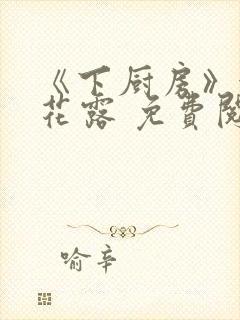 《下厨房》
花露 免費閱
喻辛